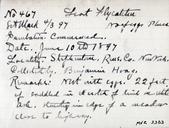 No 467 Least Flycatcher
Set Mark 4/3 97
Incubation Commenced.
Date, June 10th 1897
Locality - Stephentown, Rens. Co. New York.
Collected by, Benjamin Hoag.
Remarks: Nest with eggs 22 feet
of saddled in crotch of limb in white
ash. Standing in edge of a meadow
close to highway.